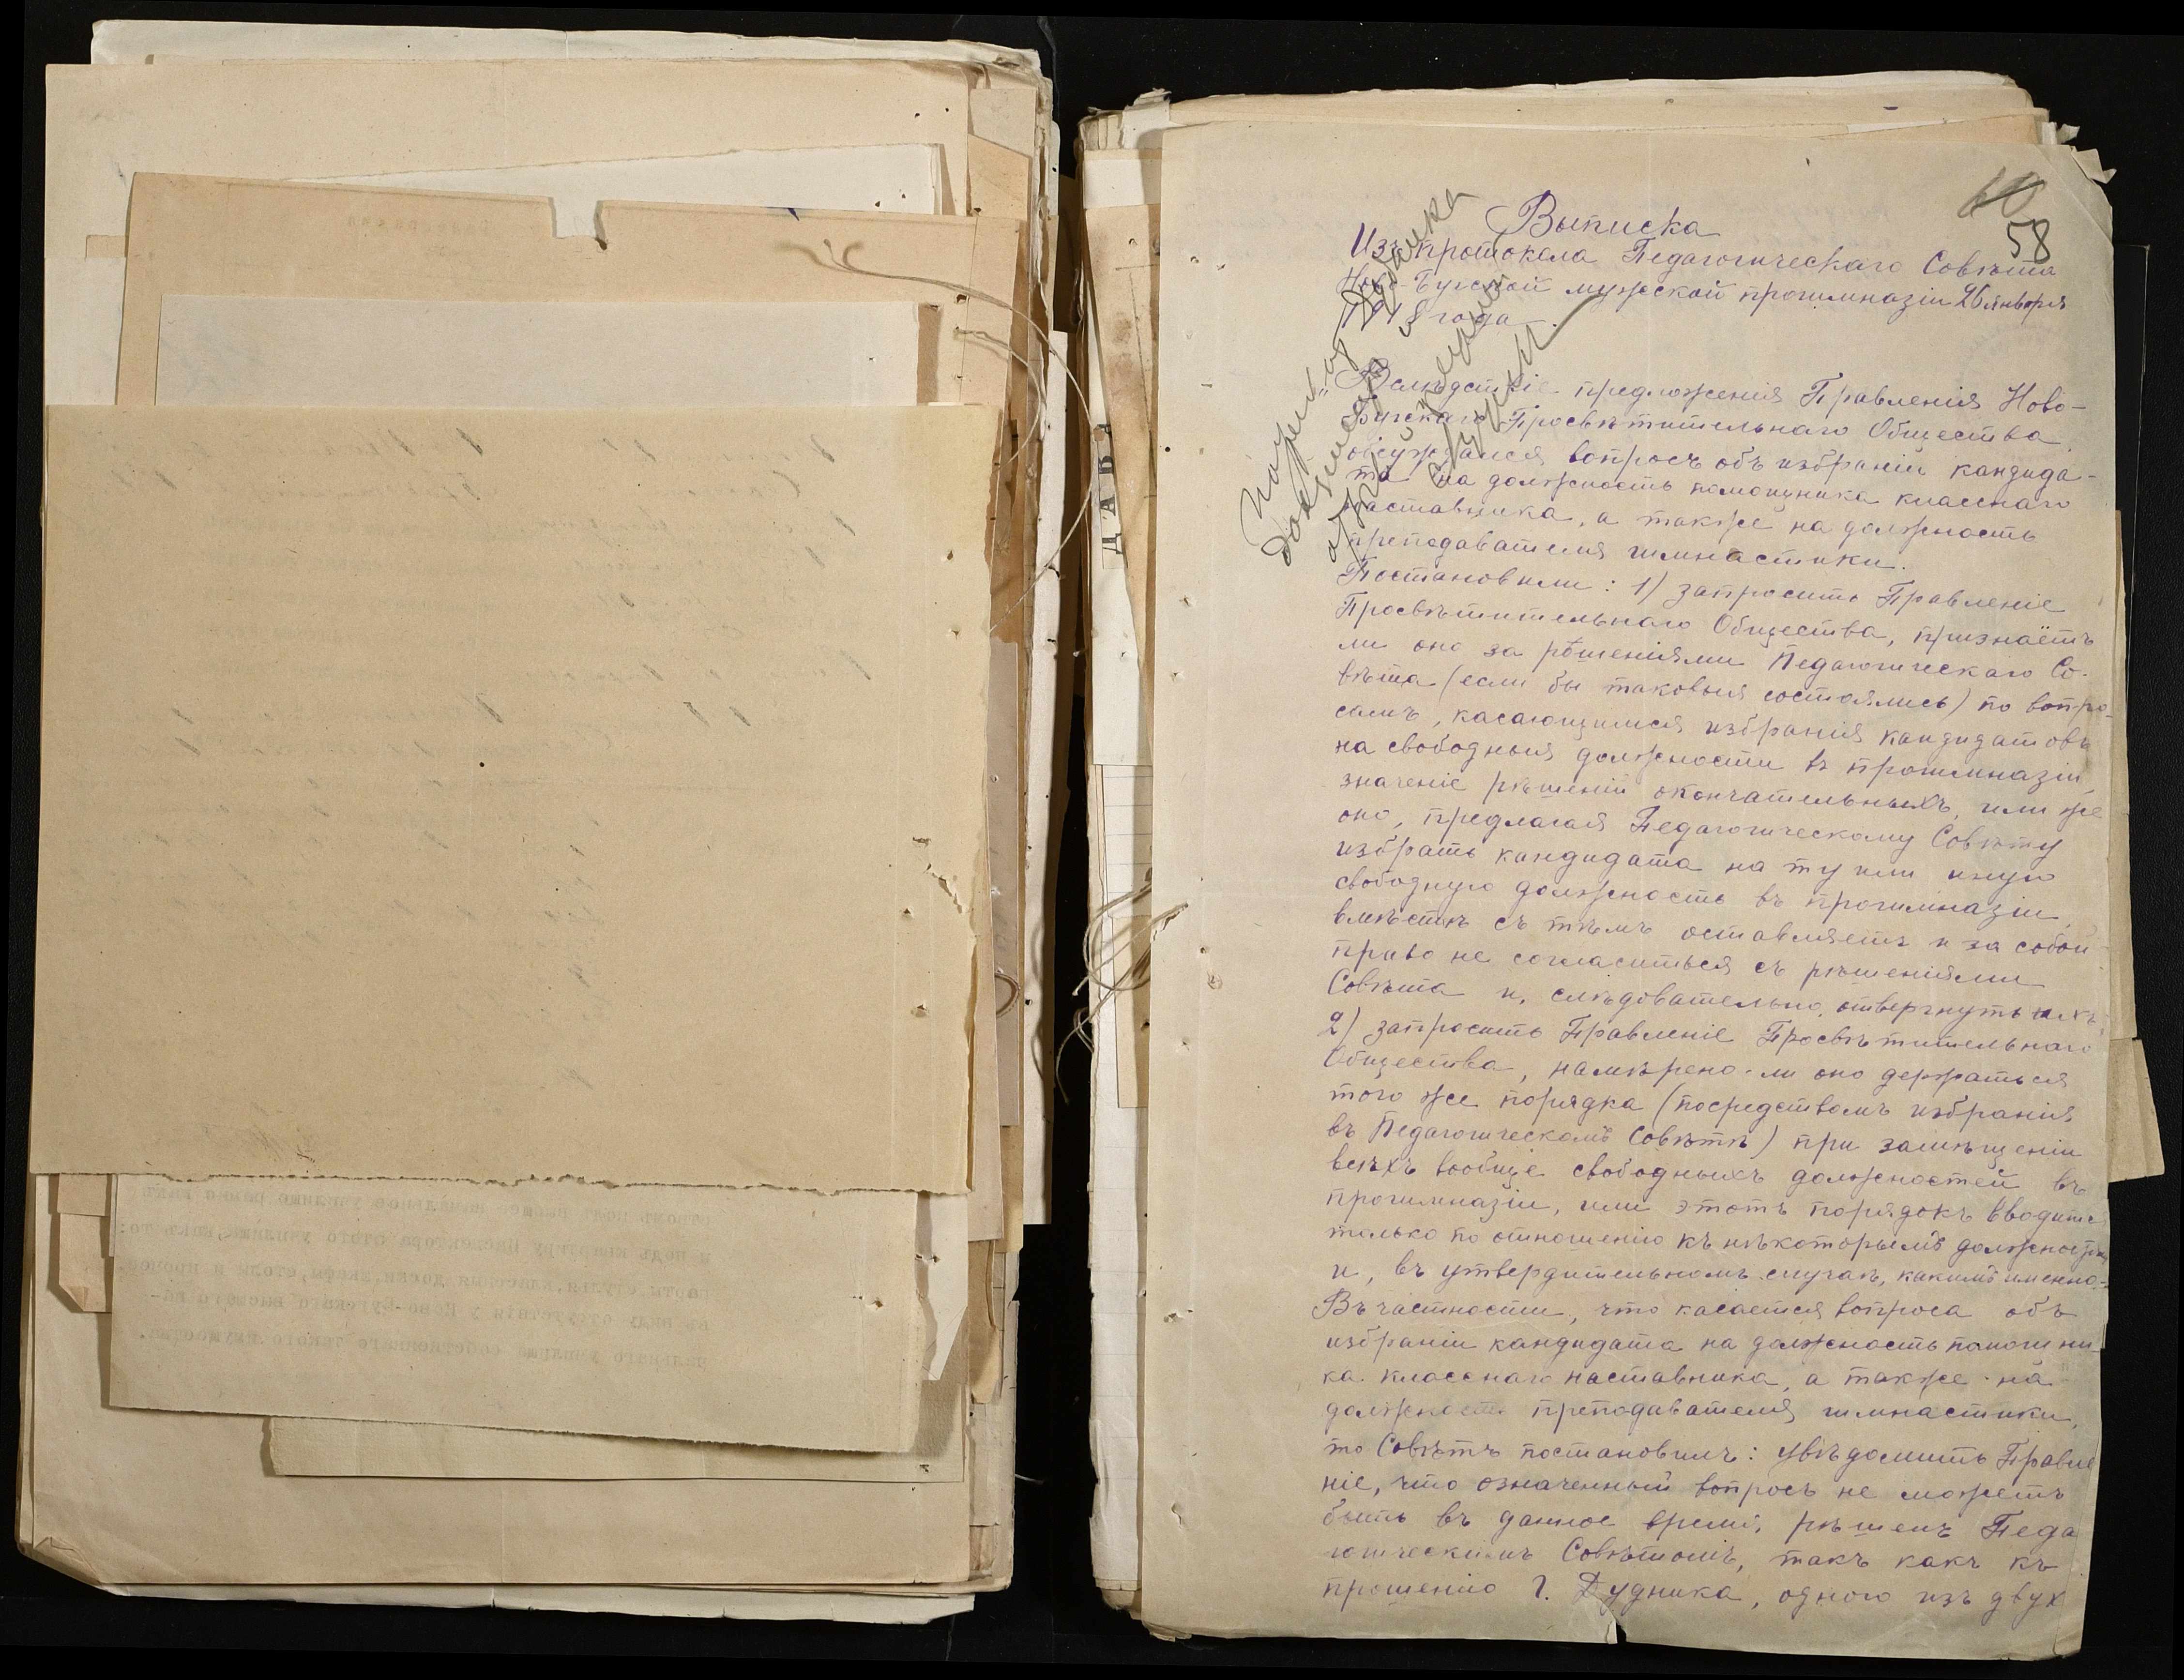 60
58
Выписка
Изъ протокола Педагогическаго Совѣта
Ново-Бугской мужской прогимназіи 26 января
1918 года.
Вслѣдствіе предложенія Правленія Ново-
Бугскаго Просвѣтительнаго Общества
обсуждался вопросъ объ избраніи кандида-
та на должность помощника класснаго
наставника, а также на должность
преподавателя гимнастики.
Постановили: 1) запросить Правленіе
Просвѣтительнаго Общества, признаётъ
ли оно за рѣшеніями Педагогическаго Со-
вѣта (если бы таковыя состоялись) по вопро-
самъ, касающимся избранія кандидатовъ
на свободныя должности въ прогимназіи,
значеніе рѣшеній окончательныхъ, или же
оно, предлагая Педагогическому Совѣту
избрать кандидата на ту или иную
свободную должность въ прогимназіи,
вмѣстѣ съ тѣмъ оставляетъ и за собой
право не согласиться съ рѣшеніями
Совѣта и, слѣдовательно, отвергнуть ихъ;
2) запросить Правленіе Просвѣтительнаго
Общества, намѣрено-ли оно держаться
того же порядка (посредствомъ избранія
въ Педагогическомъ Совѣтѣ) при замѣщеніи
всѣхъ вообще свободныхъ должностей въ
прогимназіи, или этотъ порядокъ вводится
только по отношенію къ нѣкоторымъ
и, въ утвердительномъ случаѣ, какимъ именно.
Въ частности, что касается вопроса объ
избраніи кандидата на должность помощни-
ка класснаго наставника, а также на
должность преподавателя гимнастики,
то Совѣтъ постановилъ: увѣдомить Правле
ніе, что означенный вопросъ не можетъ
быть въ данное время, рѣшенъ Педа
гогическимъ Совѣтомъ, такъ какъ къ
прошенію г. Дудника, одного изъ двух